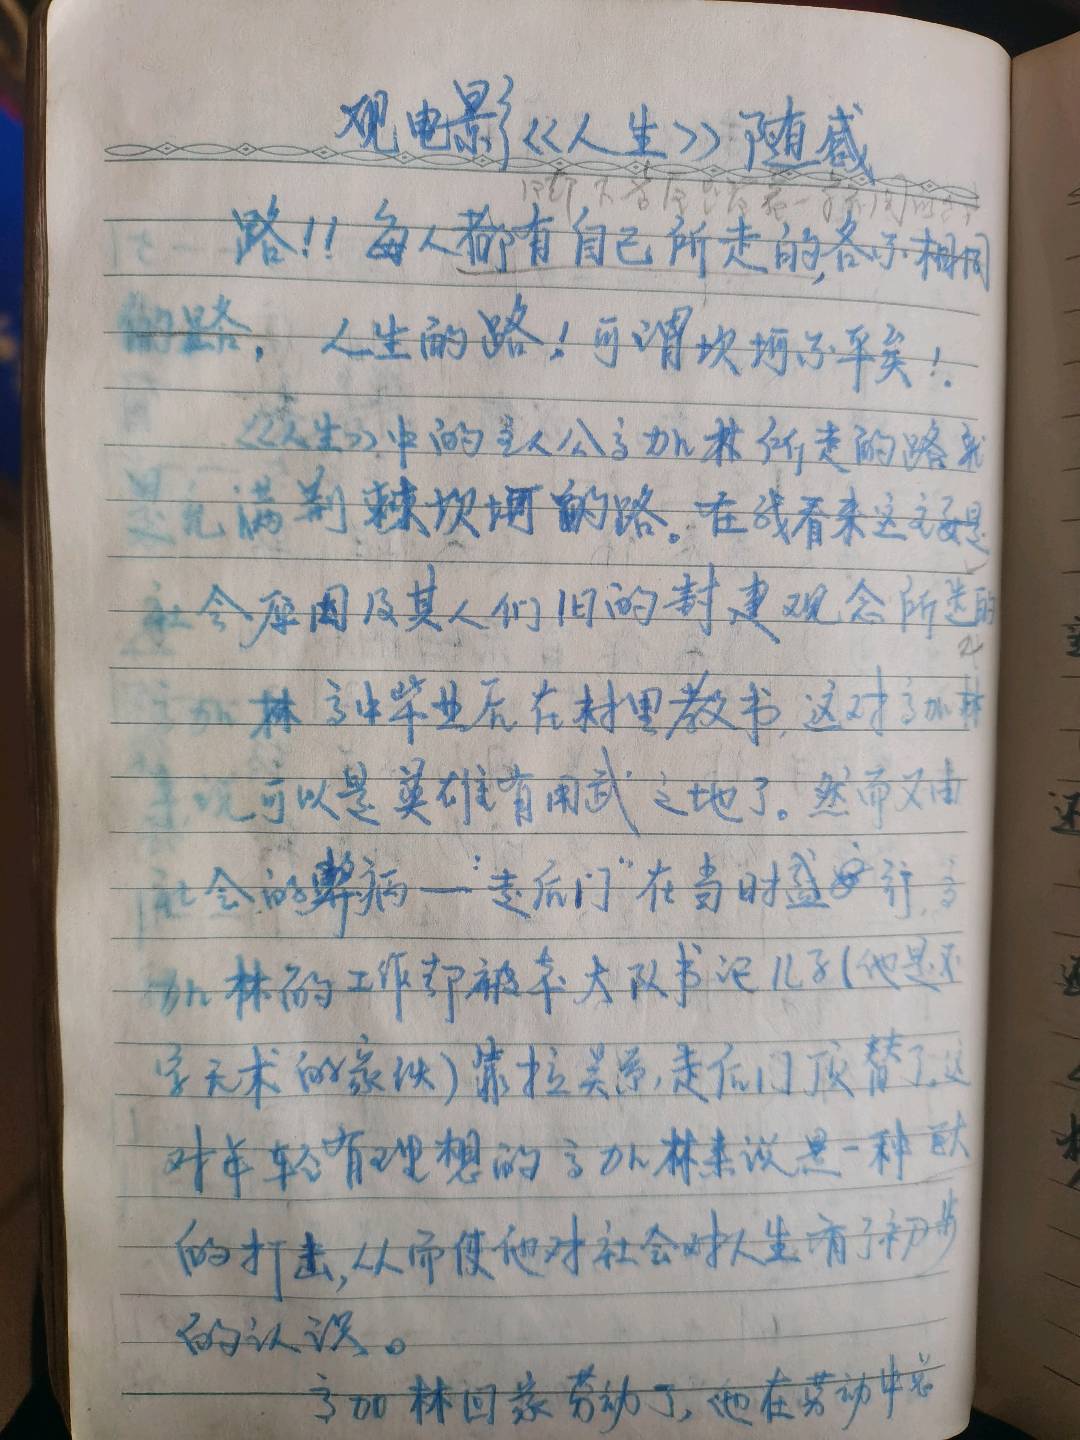 观电影《人生》随感
路!! 每人都有自己所走的,各不相同
的路, 人生的路!可谓坎坷不平矣!
《人生》中的主人公高加林所走的路就
是充满荆棘坎坷的路。在我看来这主要是
社会原因及其人们旧的封建观念所造的
高加林高中毕业后在村里教书,这对高加林
来说可以是英雄有用武之地了。然而又由
社会的弊病一"走后门"在当时盛行,高
加林的工作却被本大队书记儿子(他是不
学无术的家伙)靠拉关系,走后门顶替了,这
对年轻有理想的高加林来说是一种
的打击,从而使他对社会对人生有了初步
的认识。
高加林回家劳动了,他在劳动中总